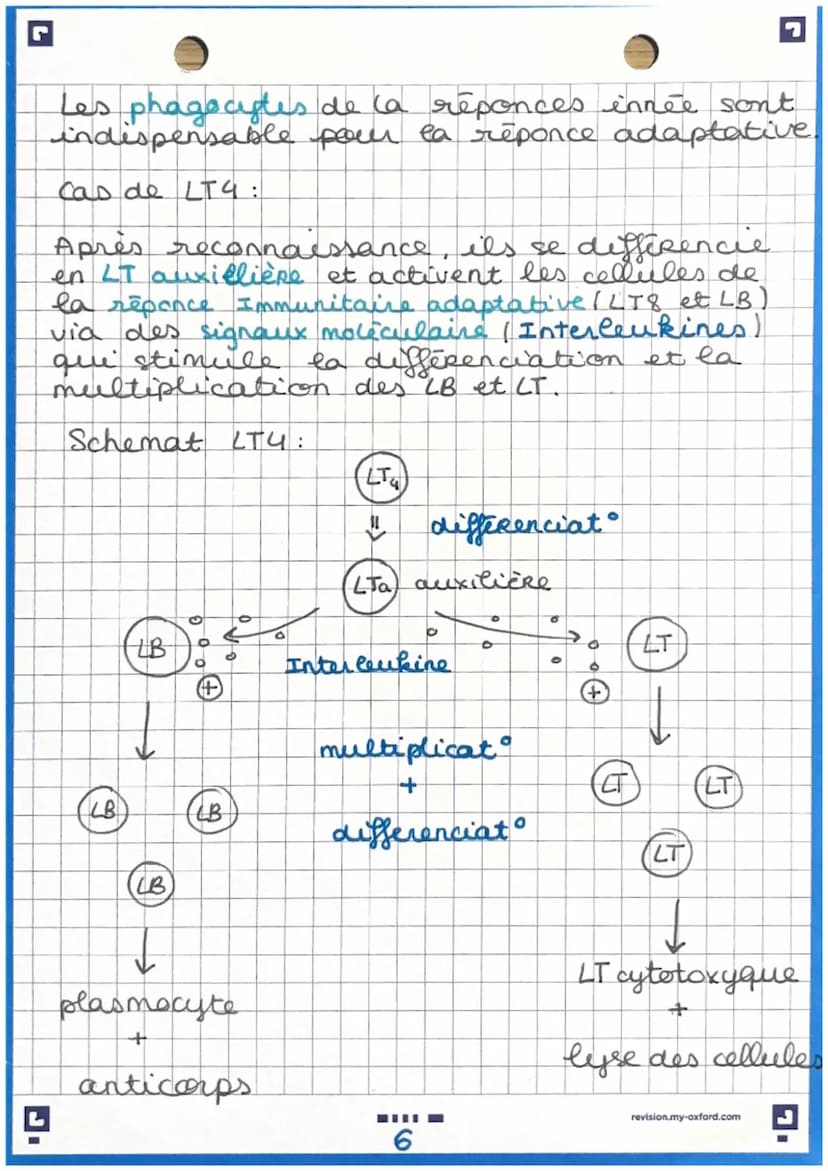 Les phagocytes de la réponces innée sont
indispensable pour la réponce adaptative.
Cas de LT4 :
Après reconnaissance, ils se différencie
en LT auxilière et activent les cellules de
la réponce Immunitaire adaptative (LT8 et LB)
via des signaux moléculaire (Interleukines)
qui stimule la différenciation et la
multiplication des LB et LT.
Schemat LT4 :
LT4
différenciat°
LTa auxilière
LB
LT
Interleukine
+
+
multiplicat°
+
differenciat°
LB
LB
LB
LT
LT
LT
plasmocyte
+
anticorps
LT cytotoxyque
+
lyse des cellules
revision.my-oxford.com
6